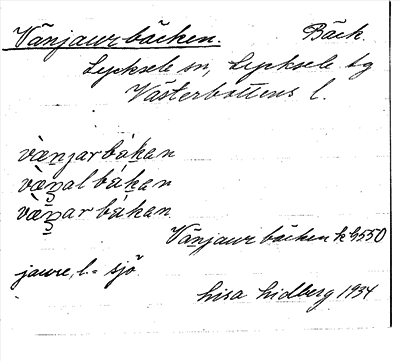 Vänjaurbäcken. Bäck.
Lycksele sn, Lycksele tg
Västerbottens l.
vænjarbákan
vænalbákan
vænarbákan
Vänjaur bäcken k h 9550
jaure, l. = sjö
Lisa Lidberg 1934